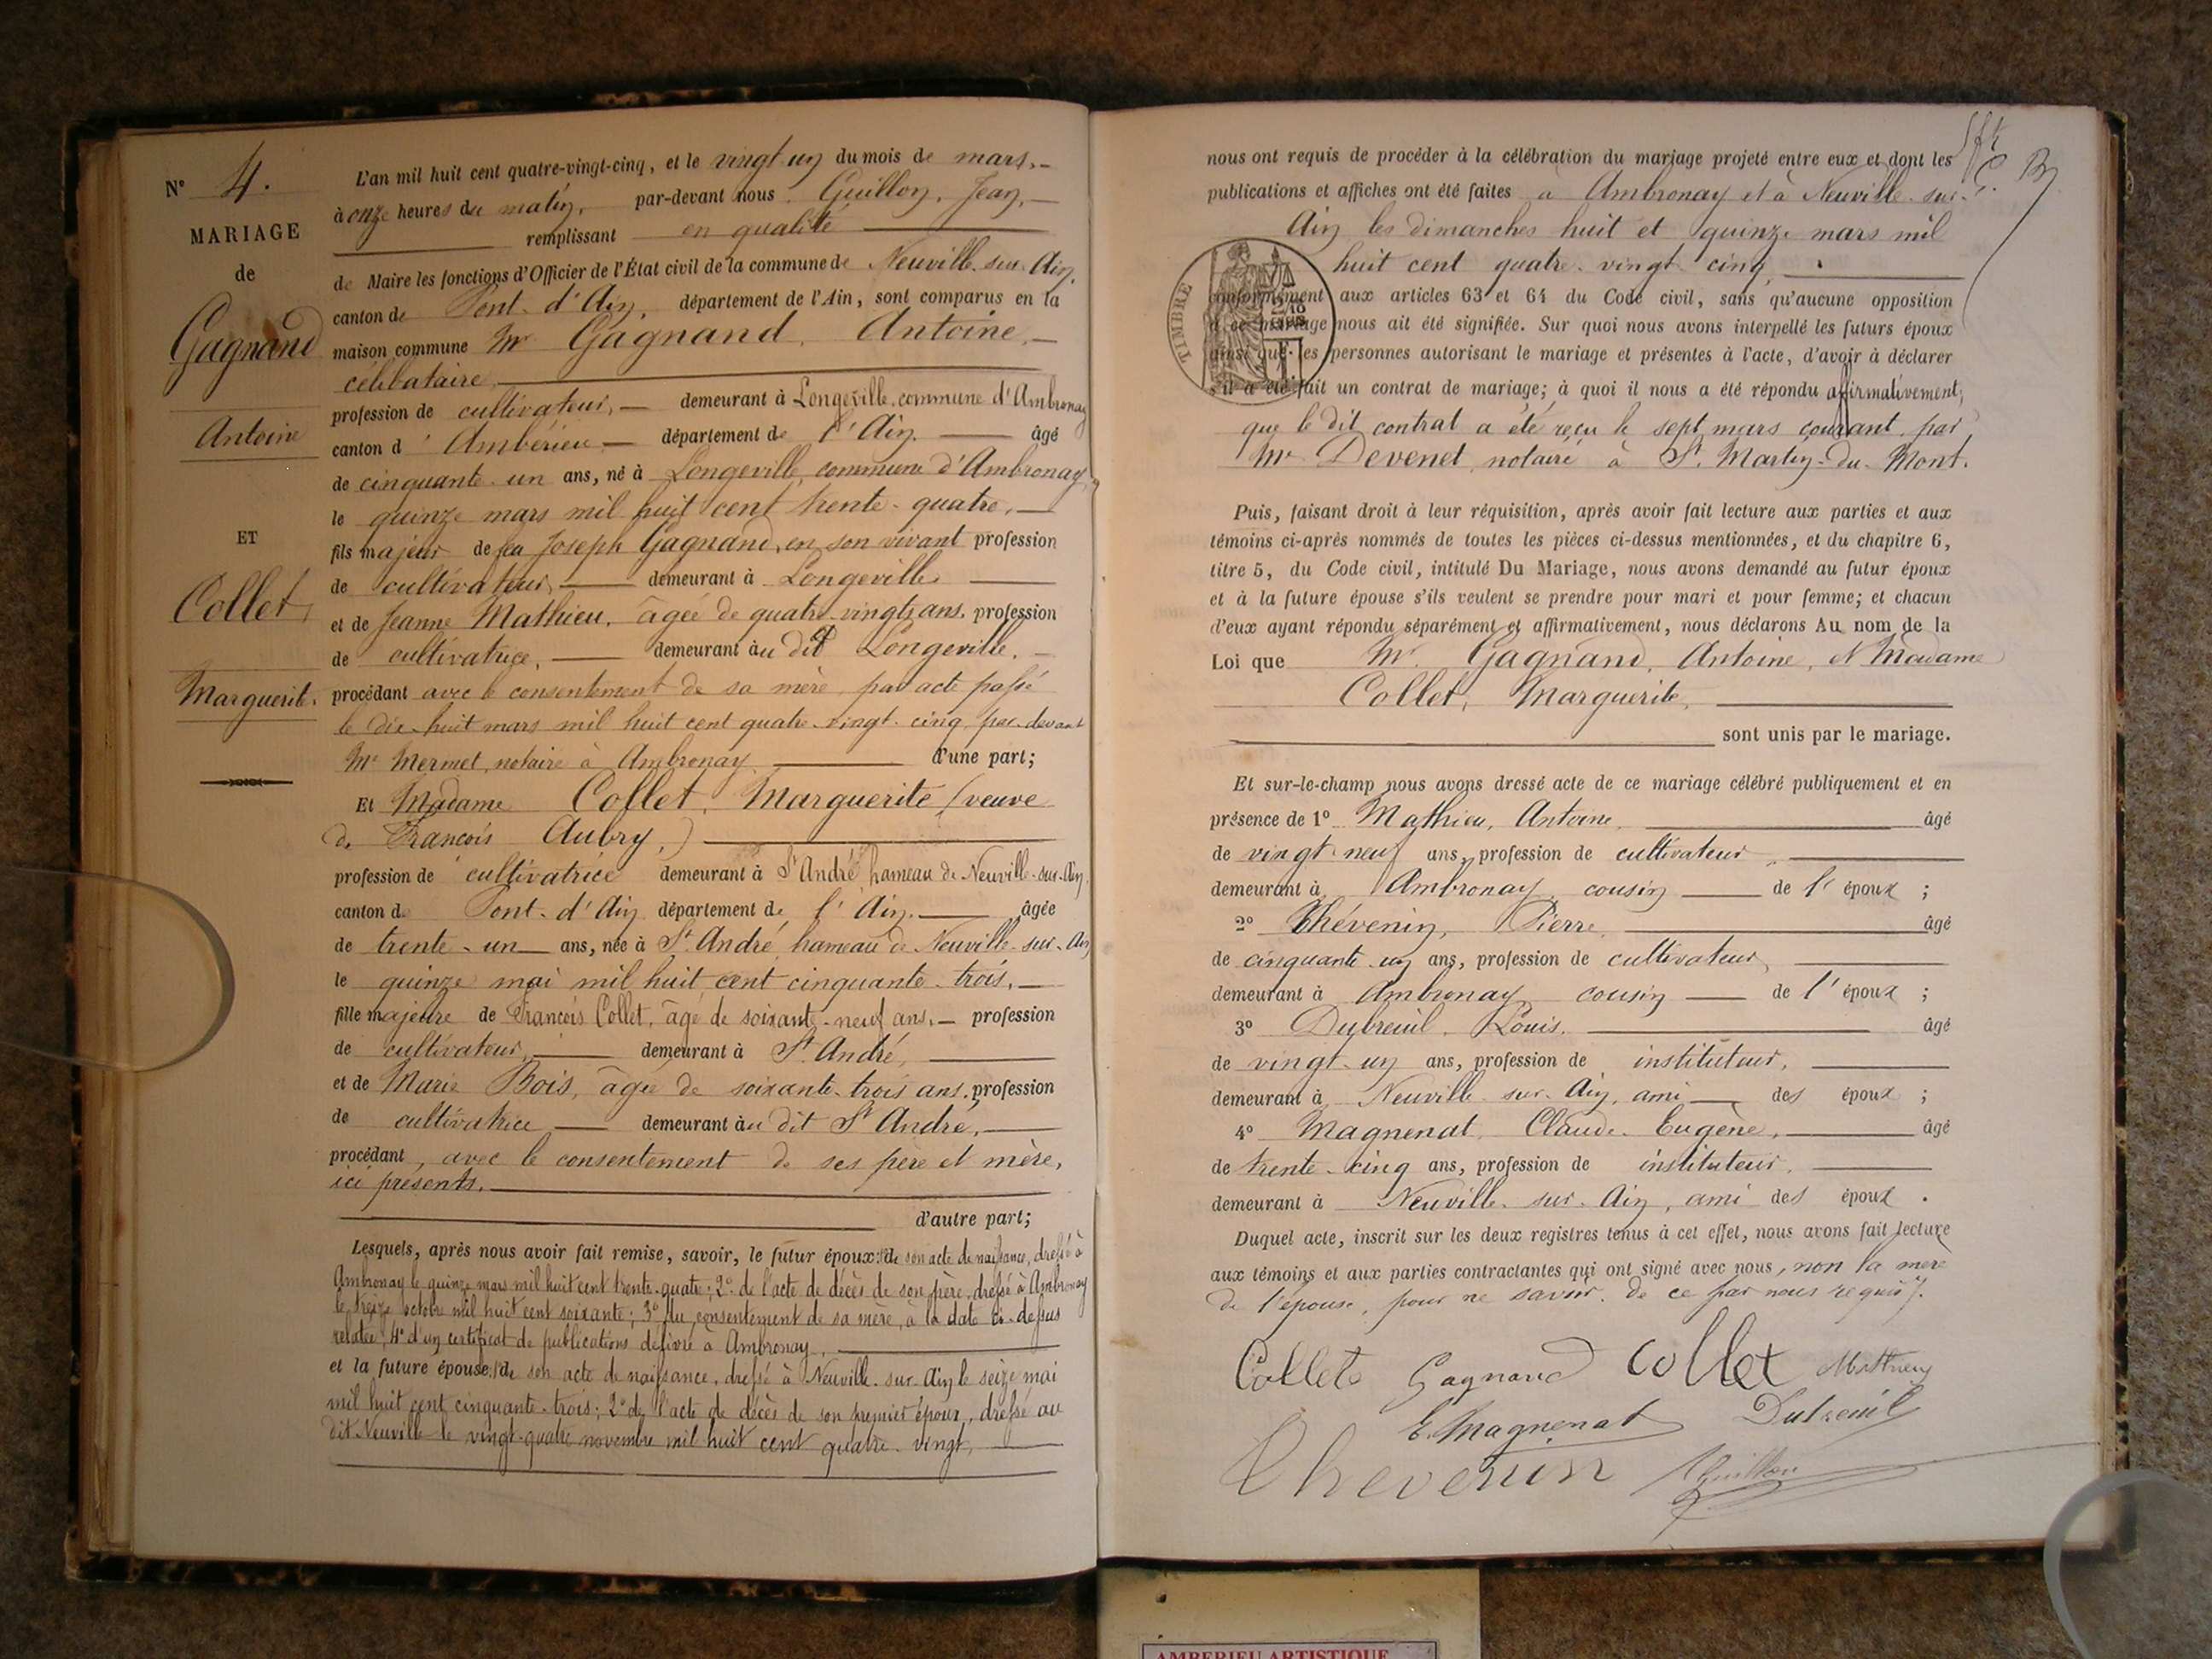 N° 4.
MARIAGE
de
Gagnand
Antoine
ET
Collet,
Marguerite.
L'an mil huit cent quatre-vingt-cinq, et le vingt-un du mois de mars, –
à onze heures du matin, par-devant nous Guillon, Jean, –
remplissant en qualité
de Maire les fonctions d'Officier de l'État civil de la commune de Neuville-sur-Ain,
canton de Pont-d'Ain, département de l'Ain, sont comparus en la
maison commune Mr Gagnand, Antoine, –
célibataire
profession de cultivateur, – demeurant à Longeville, commune d'Ambronay
canton d'Ambérieu – département de l'Ain. – âgé
de cinquante-un ans, né à Longeville, commune d'Ambronay,
le quinze mars mil huit cent trente-quatre, –
fils majeur de feu Joseph Gagnand, en son vivant profession
de cultivateur, – demeurant à Longeville
et de Jeanne Mathieu, âgée de quatre-vingts ans, profession
de cultivatrice, – demeurant au dit Longeville. –
procédant avec le consentement de sa mère, par acte passé
le dix-huit mars mil huit cent quatre-vingt-cinq, par-devant
Me Mermet, notaire à Ambronay, d'une part;
Et Madame Collet, Marguerite (veuve
de François Aubry,)
profession de cultivatrice demeurant à St André hameau de Neuville-sur-Ain,
canton de Pont-d'Ain département de l'Ain. – âgée
de trente-un ans, née à St André, hameau de Neuville-sur-Ain
le quinze mai mil huit cent cinquante-trois, –
fille majeure de François Collet, âgé de soixante-neuf ans, – profession
de cultivateur, – demeurant à St André,
et de Marie Bois, âgée de soixante-trois ans, profession
de cultivatrice – demeurant au dit St André, –
procédant, avec le consentement de ses père et mère,
ici présents.
d'autre part;
Lesquels, après nous avoir fait remise, savoir, le futur époux: 1° de son acte de naissance, dressé à
Ambronay le quinze mars mil huit cent trente-quatre; 2° de l'acte de décès de son père, dressé à Ambronay
le treize octobre mil huit cent soixante; 3° du consentement de sa mère, à la date ci-dessus
relatée; 4° d'un certificat de publications délivré à Ambronay,
et la future épouse: 1° de son acte de naissance, dressé à Neuville-sur-Ain le seize mai
mil huit cent cinquante-trois; 2° de l'acte de décès de son premier époux, dressé au
dit Neuville le vingt-quatre novembre mil huit cent quatre-vingt,
nous ont requis de procéder à la célébration du mariage projeté entre eux et dont les
publications et affiches ont été faites à Ambronay et à Neuville-sur-
Ain les dimanches huit et quinze mars mil
huit cent quatre-vingt-cinq,
TIMBRE
conformément aux articles 63 et 64 du Code civil, sans qu'aucune opposition
à ce mariage nous ait été signifiée. Sur quoi nous avons interpellé les futurs époux
ainsi que les personnes autorisant le mariage et présentes à l'acte, d'avoir à déclarer
s'il a été fait un contrat de mariage; à quoi il nous a été répondu affirmativement,
que le dit contrat a été reçu le sept mars courant, par
Me Devenet, notaire à St Martin-du-Mont.
Puis, faisant droit à leur réquisition, après avoir fait lecture aux parties et aux
témoins ci-après nommés de toutes les pièces ci-dessus mentionnées, et du chapitre 6,
titre 5, du Code civil, intitulé Du Mariage, nous avons demandé au futur époux
et à la future épouse s'ils veulent se prendre pour mari et pour femme; et chacun
d'eux ayant répondu séparément et affirmativement, nous déclarons Au nom de la
Loi que Mr Gagnand, Antoine, et Madame
Collet, Marguerite,
sont unis par le mariage.
Et sur-le-champ nous avons dressé acte de ce mariage célébré publiquement et en
présence de 1° Mathieu, Antoine, âgé
de vingt-neuf ans, profession de cultivateur,
demeurant à Ambronay cousin – de l'époux;
2° Thévenin, Pierre, âgé
de cinquante-un ans, profession de cultivateur,
demeurant à Ambronay cousin – de l'époux;
3° Dubreuil, Louis, âgé
de vingt-un ans, profession de instituteur,
demeurant à Neuville-sur-Ain, ami – des époux;
4° Magnenat, Claude-Eugène, âgé
de trente-cinq ans, profession de instituteur,
demeurant à Neuville-sur-Ain, ami des époux.
Duquel acte, inscrit sur les deux registres tenus à cet effet, nous avons fait lecture
aux témoins et aux parties contractantes qui ont signé avec nous, non la mère
de l'épouse, pour ne savoir, de ce par nous requis.
Collet Gagnand Collet Mathieu
E. Magnenat Dubreuil
Thevenin Guillon
AMBERIEU ARTISTIQUE